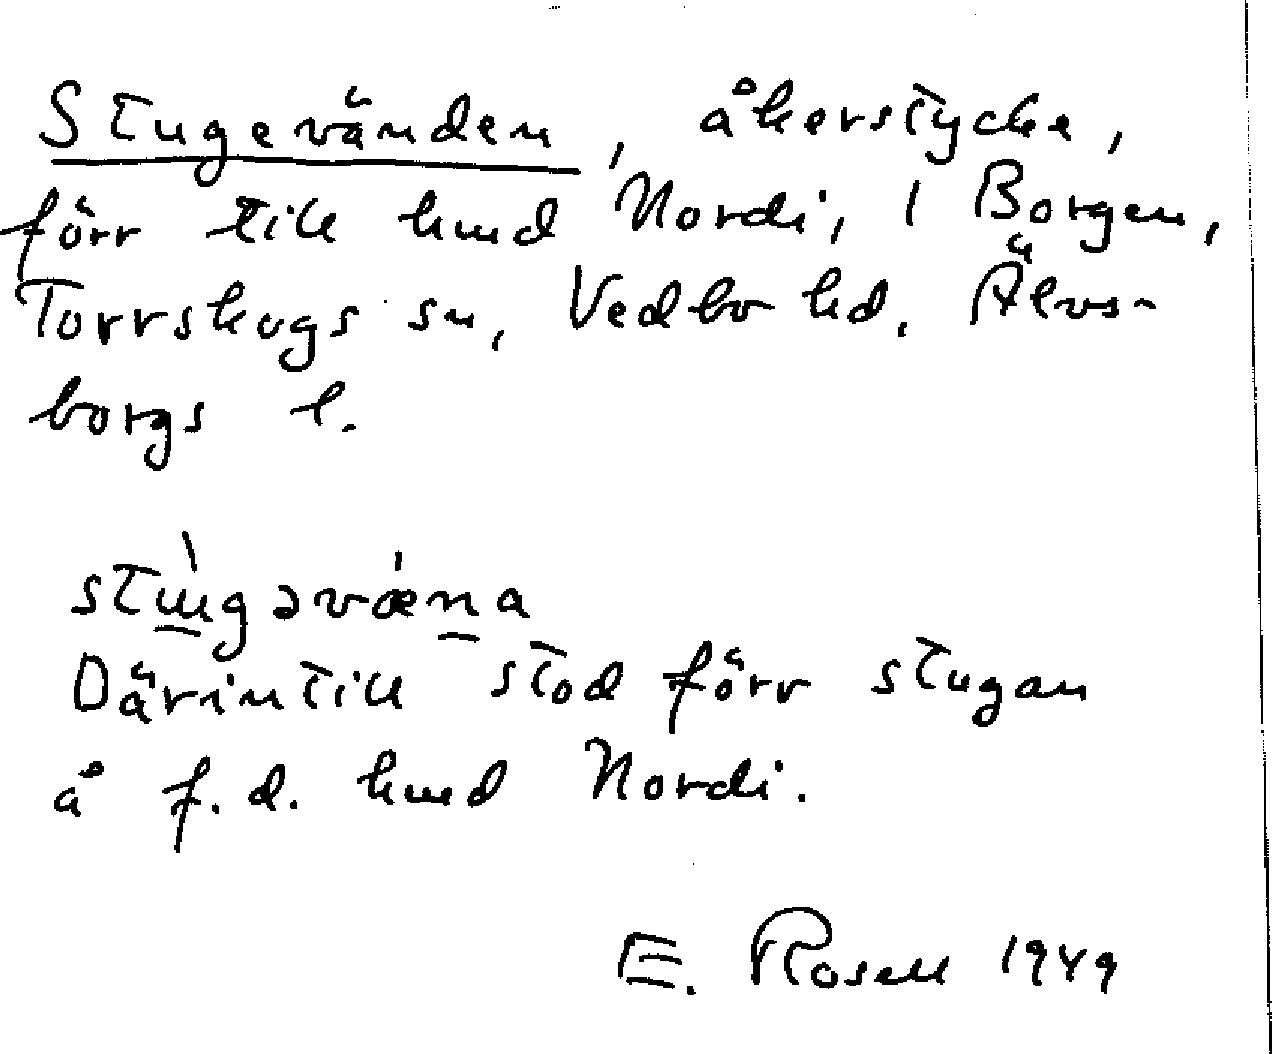 Stugevänden, åkerstycke,
förr till hmd Nordi, 1 Borgen,
Torrskogs sn, Vedbo hd. Älvs-
borgs l.
stu̲gəvæn̲a
Därintill stod förr stugan
å f.d. hmd Nordi.
E. Rosell 1949